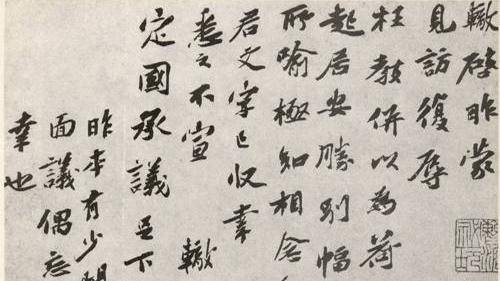 轍啓昨蒙
見訪復辱
枉教併以為荷
起居安勝別幅
所喻極知相念
若文字已収幸
悉之不宣 轍
定國承議 下
昨本有少
面議偶忘
幸也